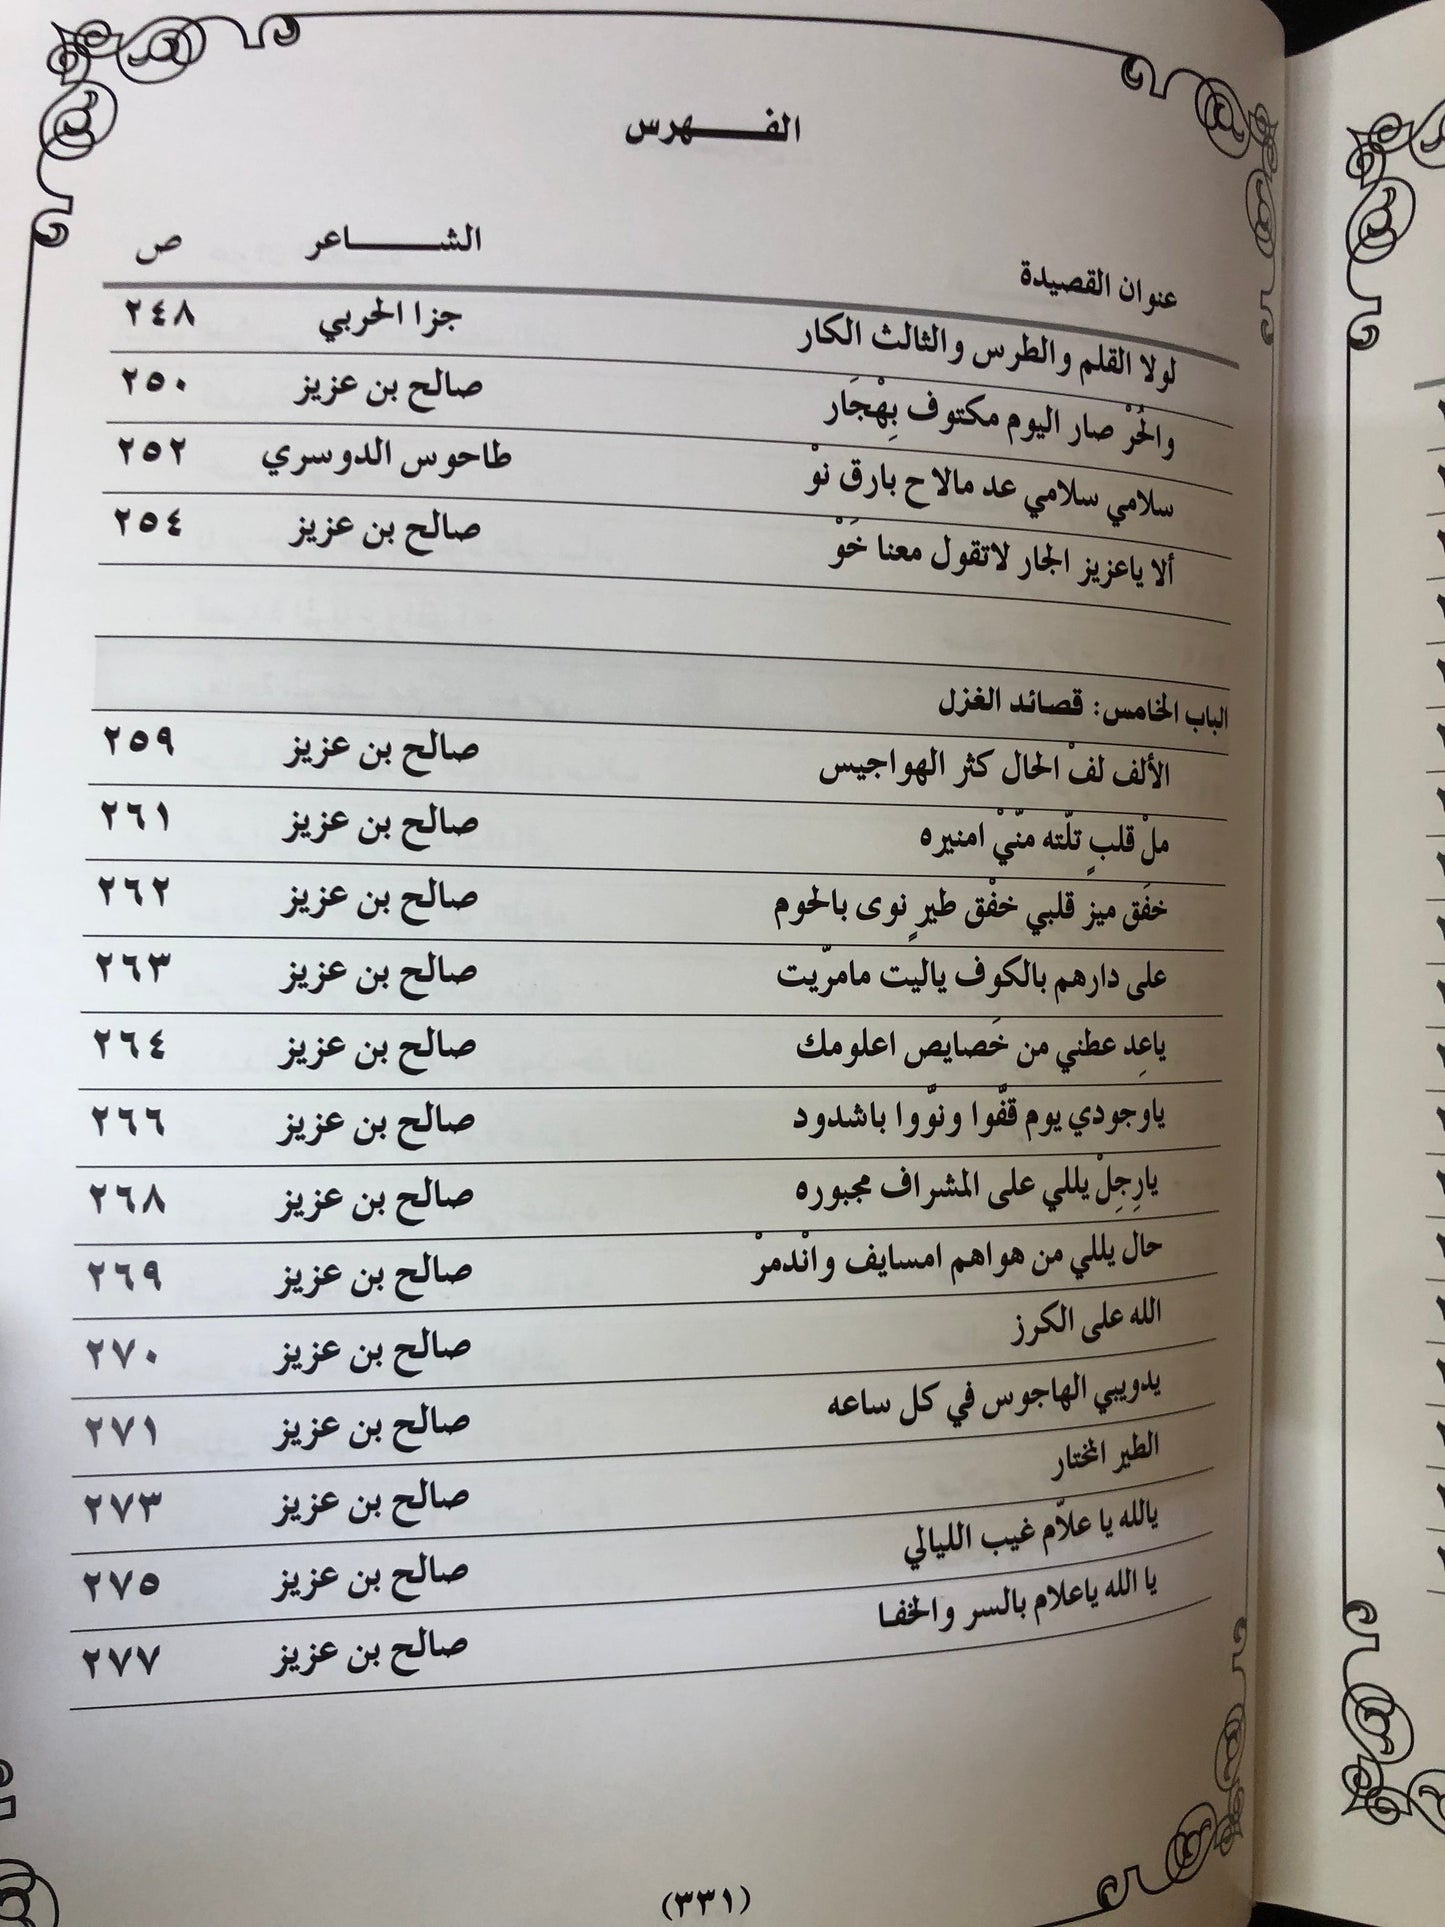 الفـــهرس
عنوان القصيدة الشـــاعر ص
لولا القلم والطرس والثالث الكار جزا الحربي ٢٤٨
والحُرْ صار اليوم مكتوف بِهْجَار صالح بن عزيز ٢٥٠
سلامي سلامي عد مالاح بارق نوْ طاحوس الدوسري ٢٥٢
ألا ياعزيز الجار لاتقول معنا خَوْ صالح بن عزيز ٢٥٤
الباب الخامس: قصائد الغزل
الألف لفْ الحال كثر الهواجيس صالح بن عزيز ٢٥٩
ملْ قلبٍ تلّته منّيْ امنيره صالح بن عزيز ٢٦١
خفَق ميز قلبي خفْق طيرٍ نوى بالحوم صالح بن عزيز ٢٦٢
على دارهم بالكوف ياليت مامرّيت صالح بن عزيز ٢٦٣
ياعِد عطني من خَصايص اعلومك صالح بن عزيز ٢٦٤
ياوجودي يوم قفّوا ونوّوا باشدود صالح بن عزيز ٢٦٦
يارِجِلْ يللي على المشراف مجبوره صالح بن عزيز ٢٦٨
حال يللي من هواهم امسايف وانْدمرْ صالح بن عزيز ٢٦٩
الله على الكرز صالح بن عزيز ٢٧٠
يدويبي الهاجوس في كل ساعه صالح بن عزيز ٢٧١
الطير المختار صالح بن عزيز ٢٧٣
يالله يا علاّم غيب الليالي صالح بن عزيز ٢٧٥
يا الله ياعلام بالسر والخفا صالح بن عزيز ٢٧٧
(٣٣١)